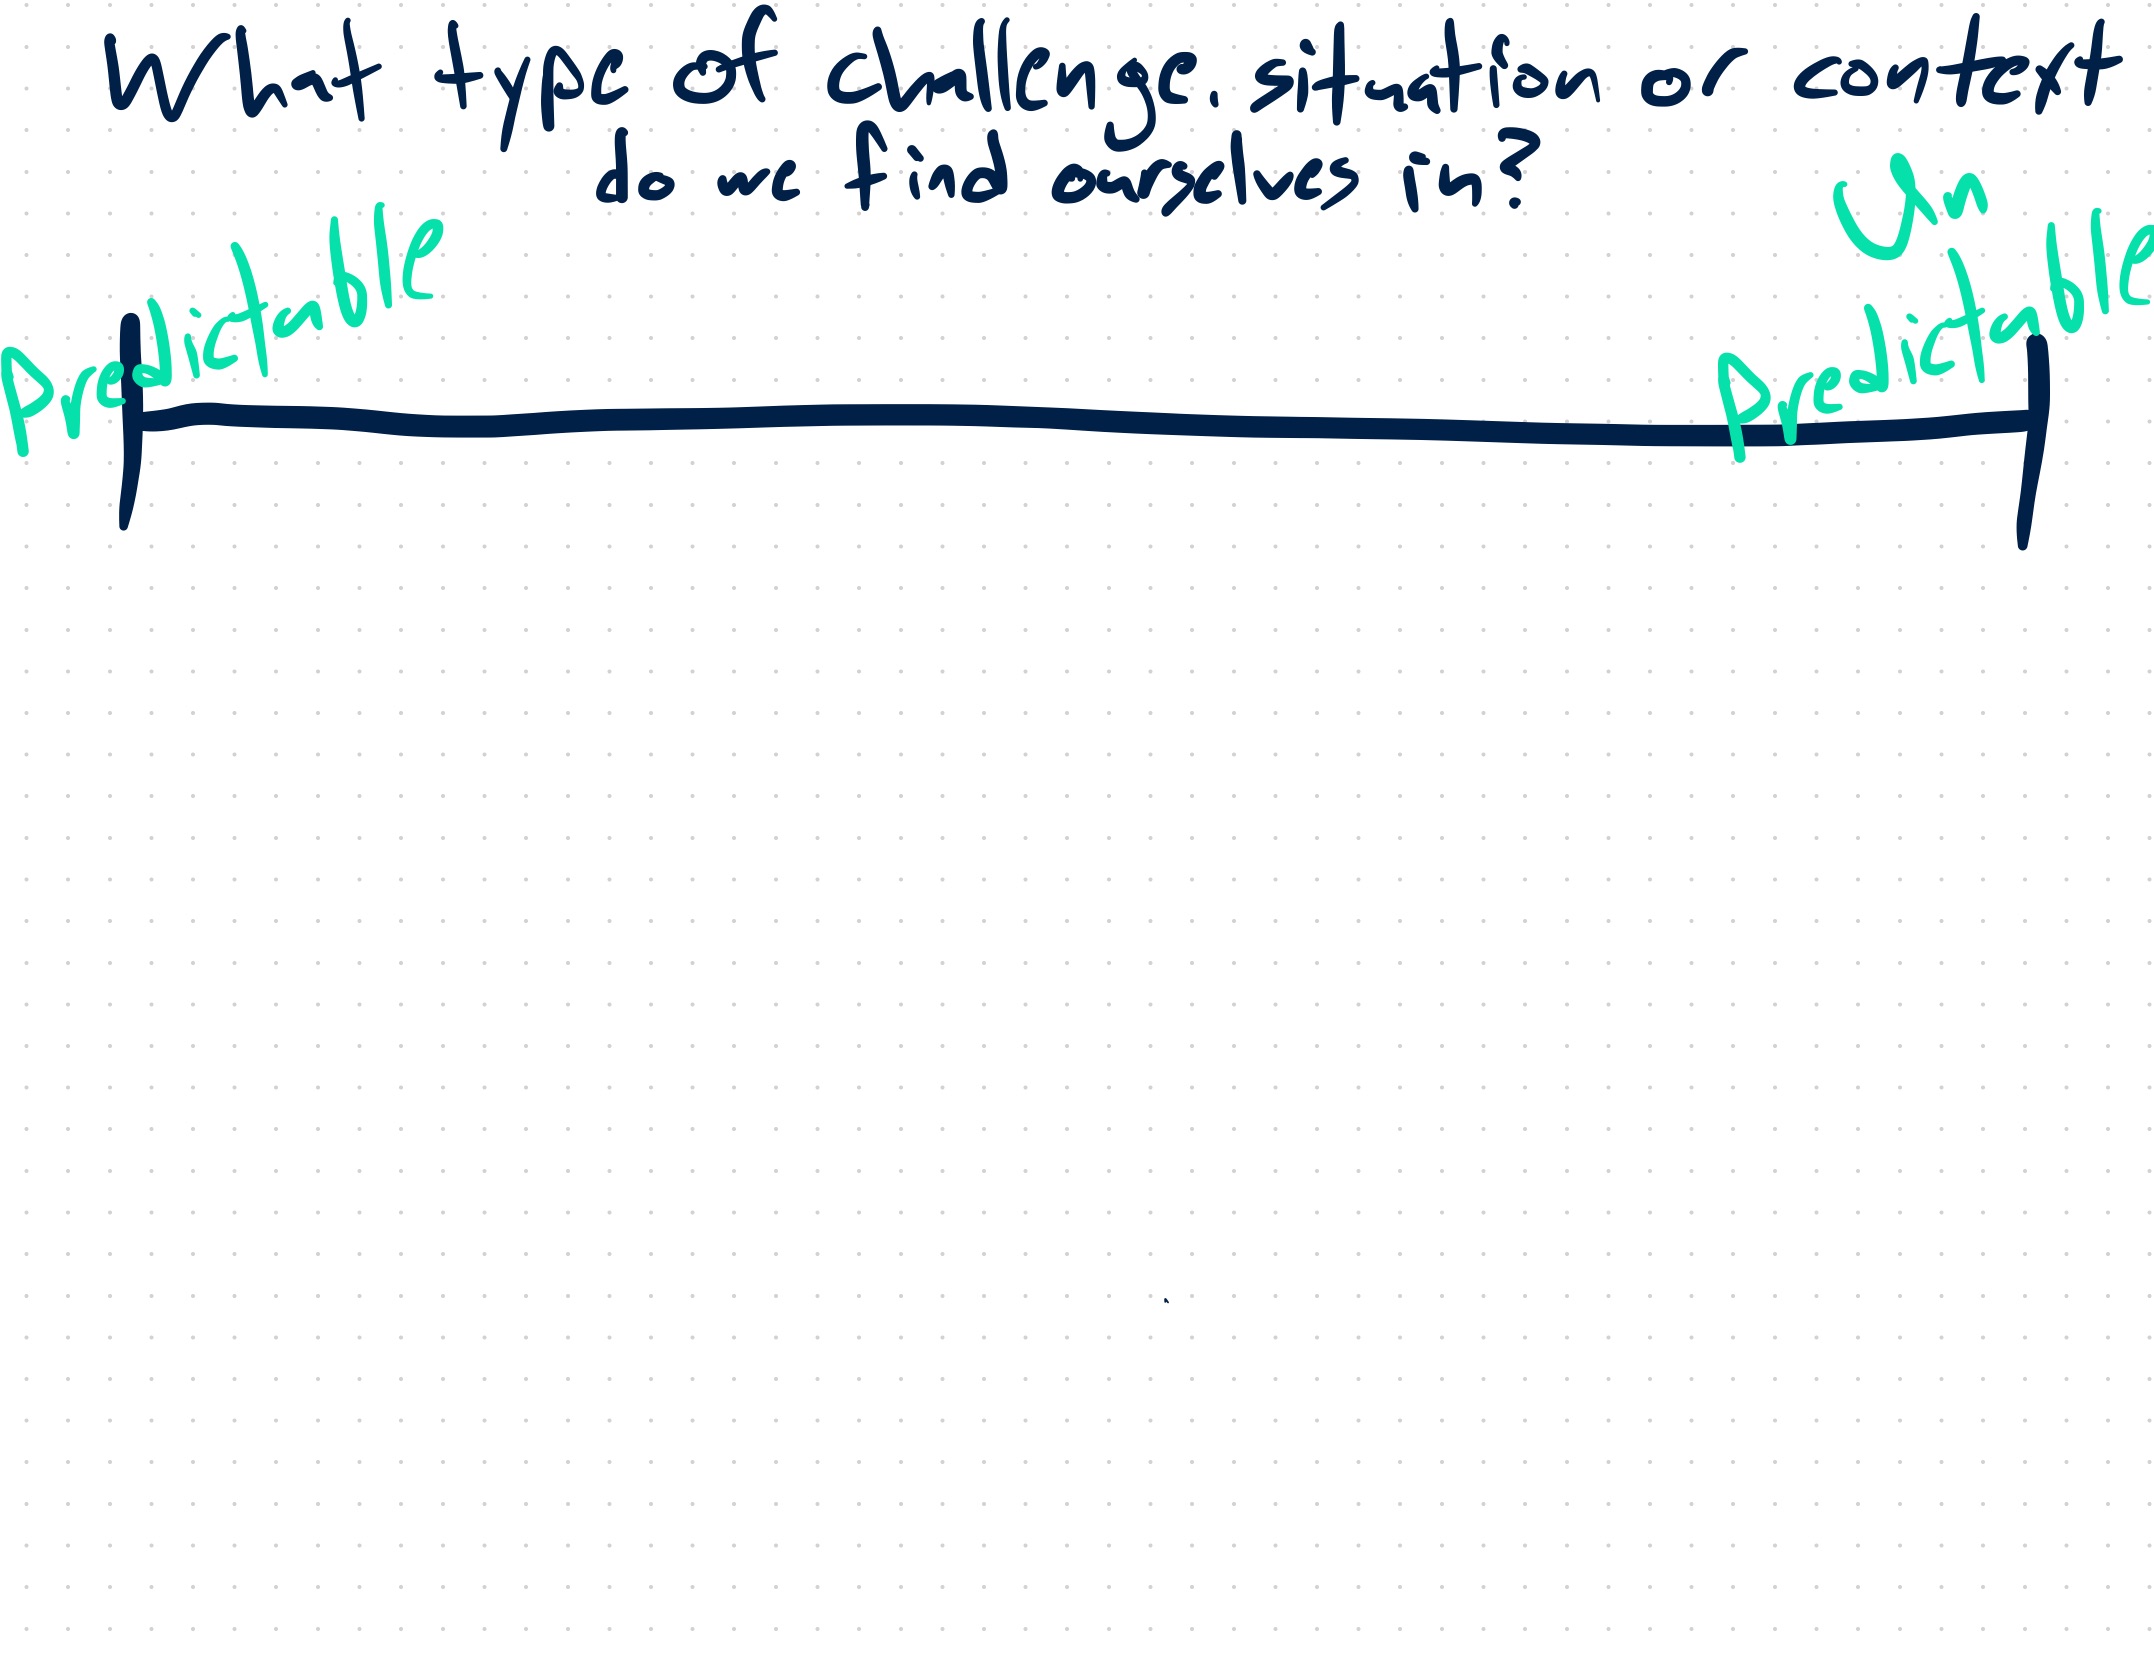 What type of challenge, situation or context
do we find ourselves in?
Predictable
Un
Predictable